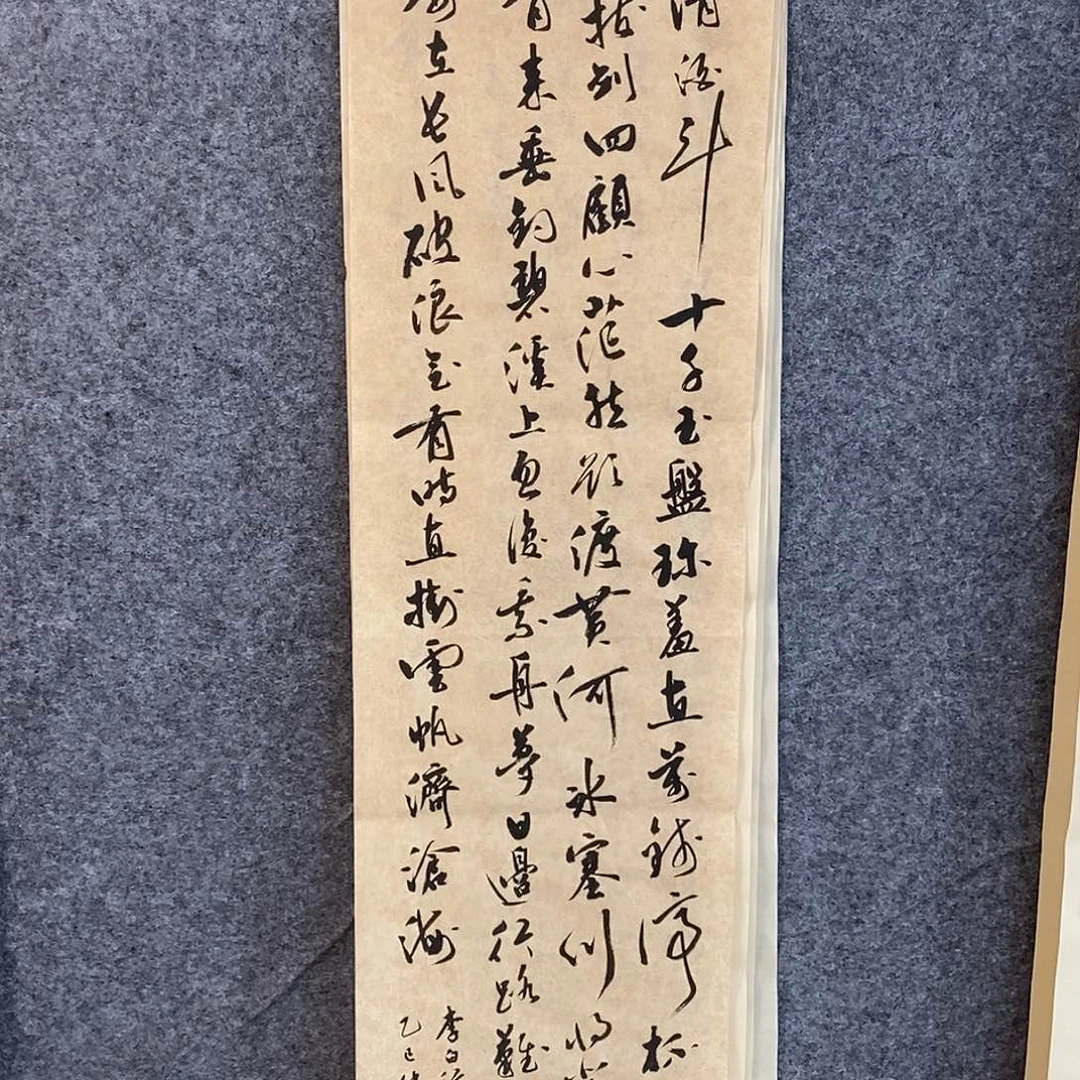 清酒斗十千玉盤珍羞直萬錢停杯
拔劍四顧心茫然欲渡黄河冰塞川將
來垂釣碧溪上忽復乘舟夢日邊行路難
安在長風破浪會有時直掛雲帆濟滄海
李白詩
乙巳